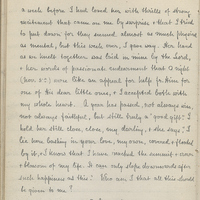 a week before I had loved her with thrills of strong
excitement that came on me by surprise & that I tried
to put down for they seemed almost as much physical
as mental, but this week even, I grew grave. Her hand
as we knelt together was laid in mine by the Lord,
& her words of passionate endearment that I said
were like an appeal for help from Him for one
of His dear little ones, & I accepted both with
my whole heart. A year has passed, not always nice,
not always faithful, but still truly a good gift: I
hold her still close, close, my darling, & she says I
let her. looking in grown love, my own, owned & blessed
by it, & I know that I have reached the summit & crown
& blossom of my life. It can only slope downwards after
such happiness as this! Who am I that all this should
be given to me?